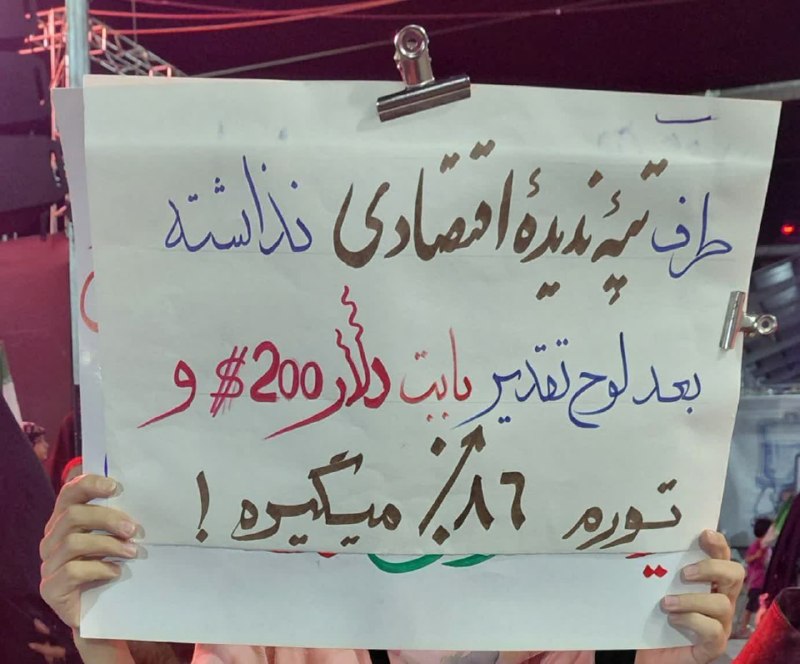 طرف تپهٔ ندیدهٔ اقتصادی نذاشته
بعد لوح تقدیر بابت دلار 200$ و
تورم ۸۶٪ میگیره !